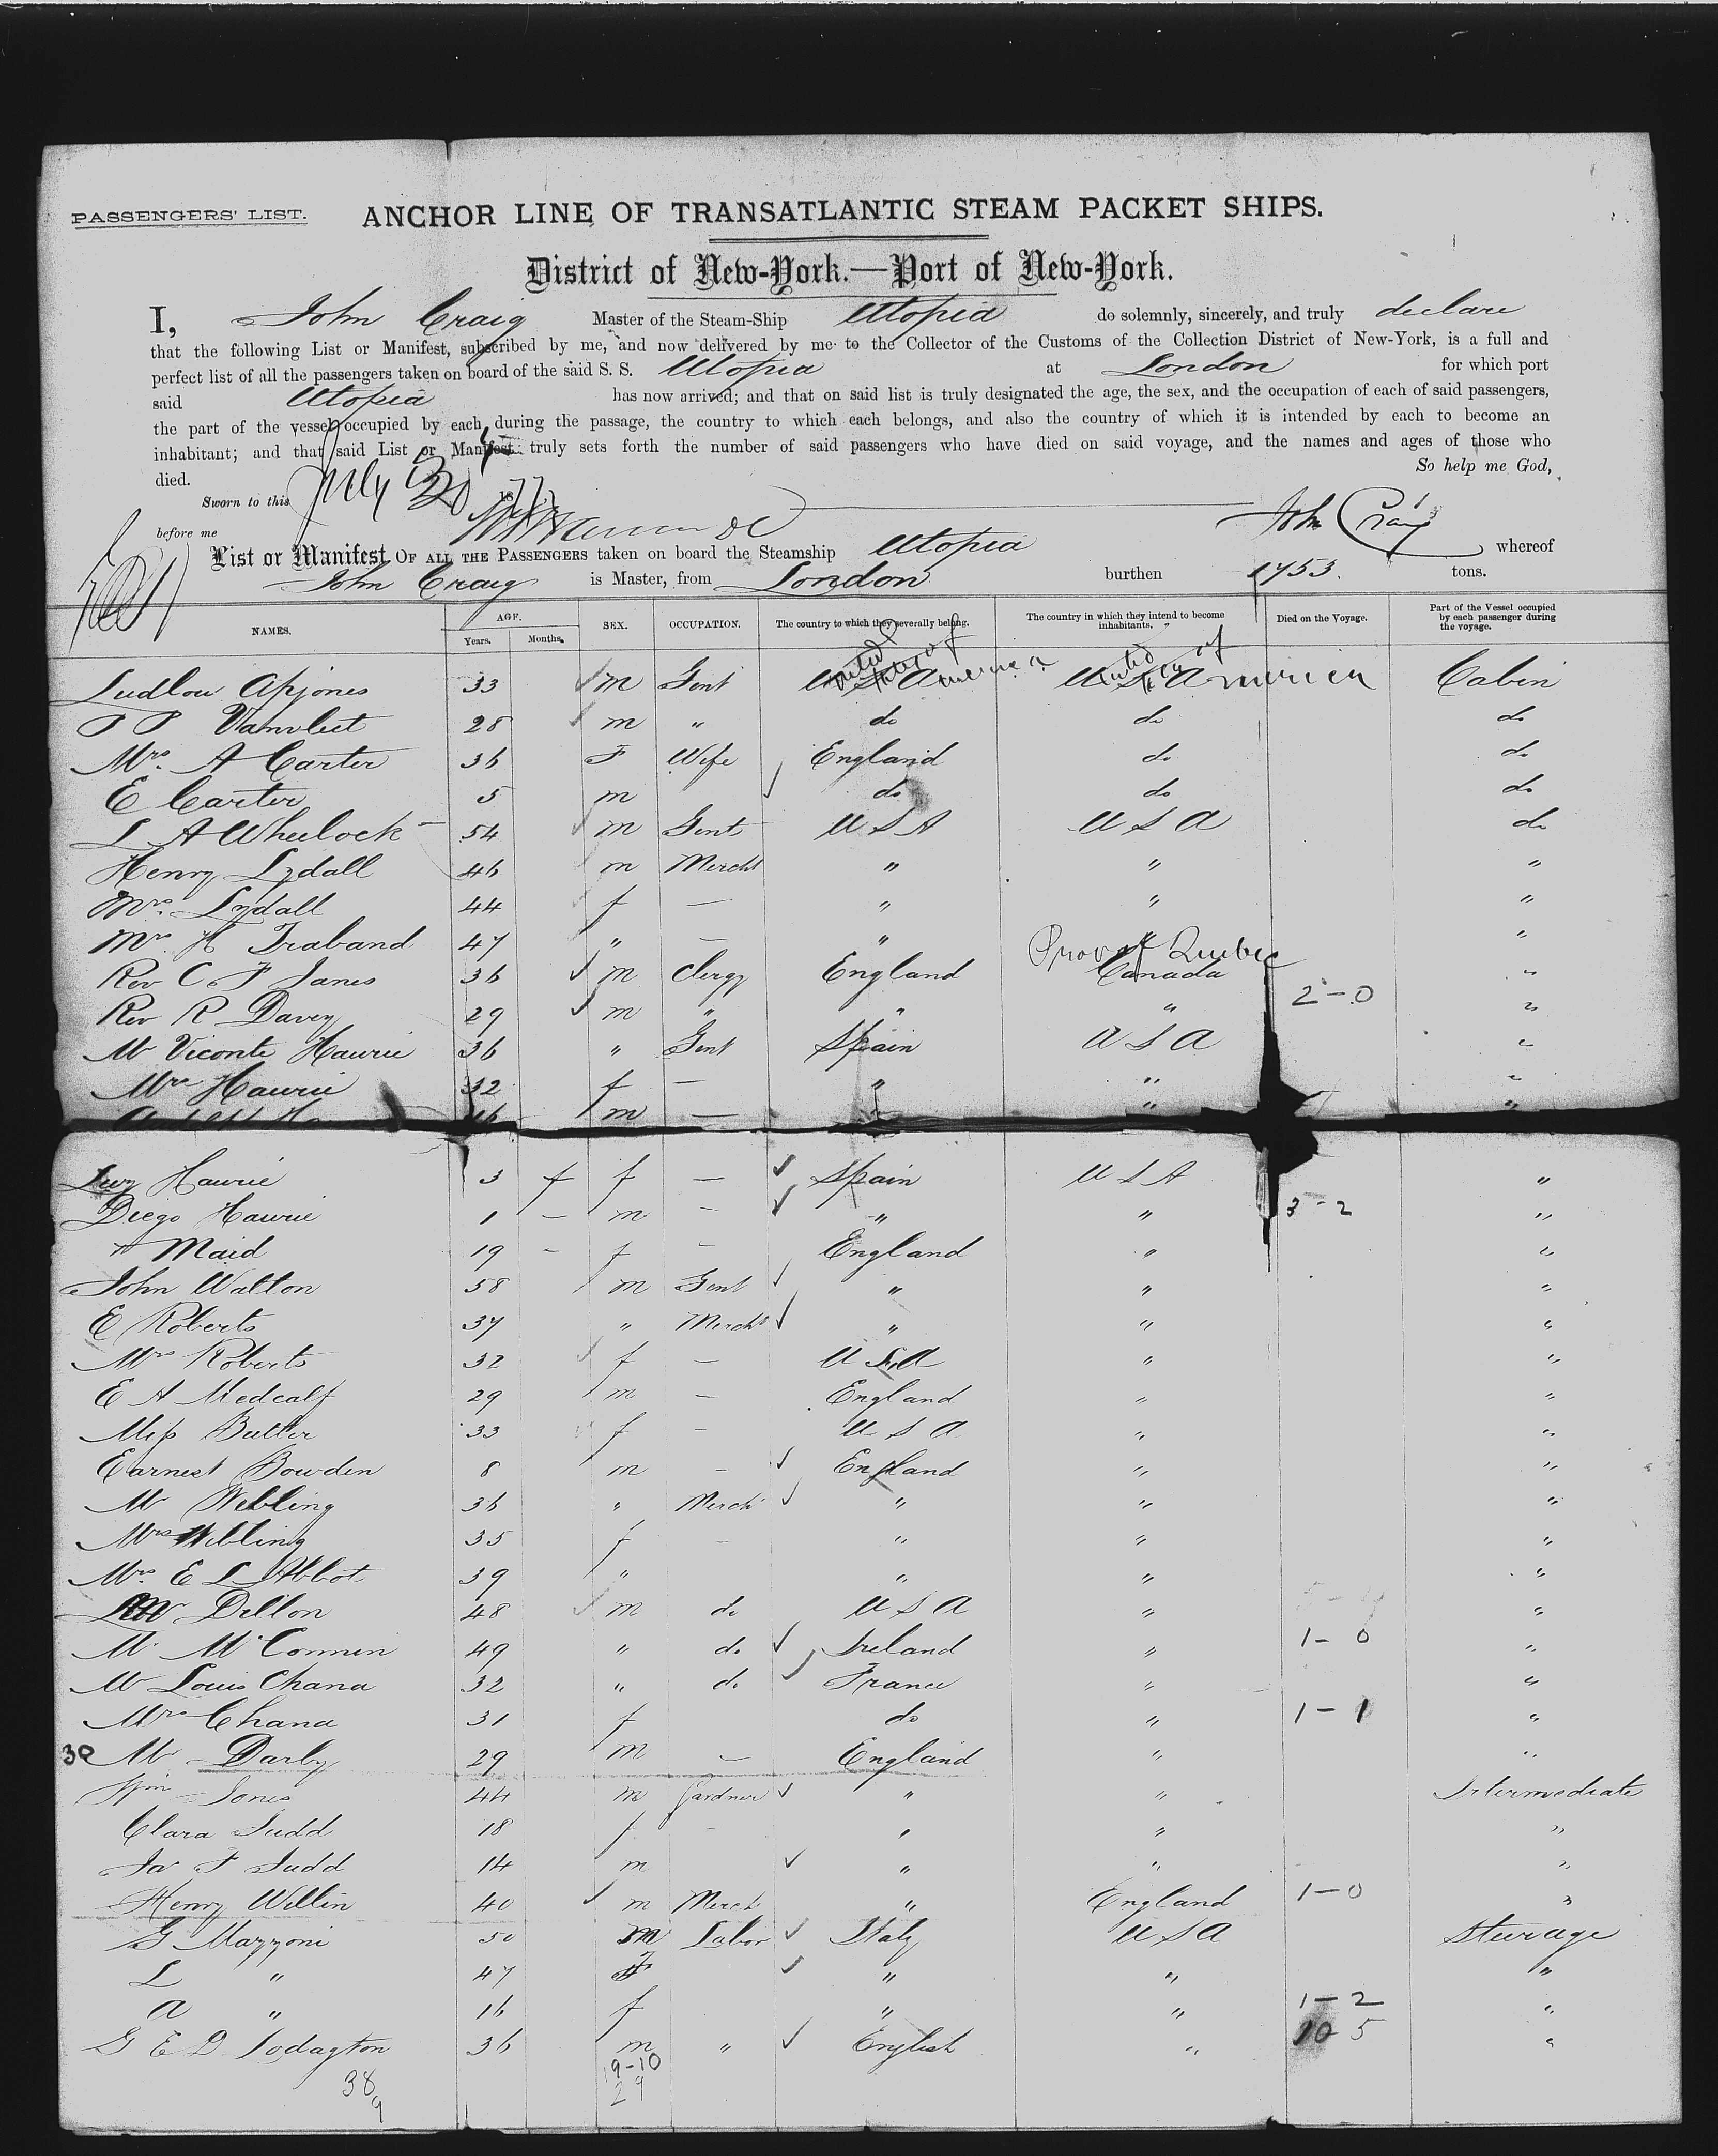 PASSENGERS' LIST. ANCHOR LINE OF TRANSATLANTIC STEAM PACKET SHIPS.
District of New-York.—Port of New-York.
I, John Craig Master of the Steam-Ship Utopia do solemnly, sincerely, and truly declare
that the following List or Manifest, subscribed by me, and now delivered by me to the Collector of the Customs of the Collection District of New-York, is a full and
perfect list of all the passengers taken on board of the said S. S. Utopia at London for which port
said Utopia has now arrived; and that on said list is truly designated the age, the sex, and the occupation of each of said passengers,
the part of the vessel occupied by each during the passage, the country to which each belongs, and also the country of which it is intended by each to become an
inhabitant; and that said List or Manifest truly sets forth the number of said passengers who have died on said voyage, and the names and ages of those who
died. So help me God,
Sworn to this July 30 1877
before me John Craig
List or Manifest OF ALL THE PASSENGERS taken on board the Steamship Utopia whereof
John Craig is Master, from London burthen 1753. tons.
NAMES. AGE. Years. Months. SEX. OCCUPATION. The country to which they severally belong. The country in which they intend to become inhabitants. Died on the Voyage. Part of the Vessel occupied by each passenger during the voyage.
Ludlow Apjones 33 m Gent United States of America United States of America Cabin
Vanvleet 28 m " do do do
Mrs. A Carter 36 F Wife England do do
E Carter 5 m do do do
L A Wheelock 54 m Gent U S A U S A do
Henry Lydall 46 m Mercht " " "
Mrs. Lydall 44 f — " " "
Mrs H Traband 47 " — " " "
Rev C F Janes 36 m Clergy England Prov of Quebec Canada "
Rev R Davey 29 m " " " 2-0 "
Mr Viconte Haurie 36 " Gent Spain U S A "
Mrs Haurie 32 f — " " "
16 m — " " "
Lucy Haurie 3 f — Spain U S A "
Diego Haurie 1 — m — " " 3-2 "
" Maid 19 — f — England " "
John Walton 58 m Gent " " "
E Roberts 37 " Mercht " " "
Mrs Roberts 32 f — U S A " "
E A Medcalf 29 m — England " "
Miss Butler 33 f — U S A " "
Earnest Bowden 8 m — England " "
Mr Webling 36 " Mercht " " "
Mrs Webling 35 f — " " "
Mrs. E L Abbot 39 " " " "
Dillon 48 m do U S A " "
Mr McConnin 49 " do Ireland " 1-0 "
Mr Louis Chana 32 " do France " "
Mrs Chana 31 f do " 1-1 "
30 Mr Darby 29 m — England " "
Wm Jones 44 m Gardner " " Intermediate
Clara Judd 18 f — " " "
Jas F Judd 14 m " " "
Henry Willin 40 m Merch " England 1-0 "
G Mazzoni 50 m Labor Italy U S A Steerage
L " 47 F " " "
A " 16 f " " 1-2 "
G E D Lodagton 36 m " English " 10 5 "
38 19-10
9 29